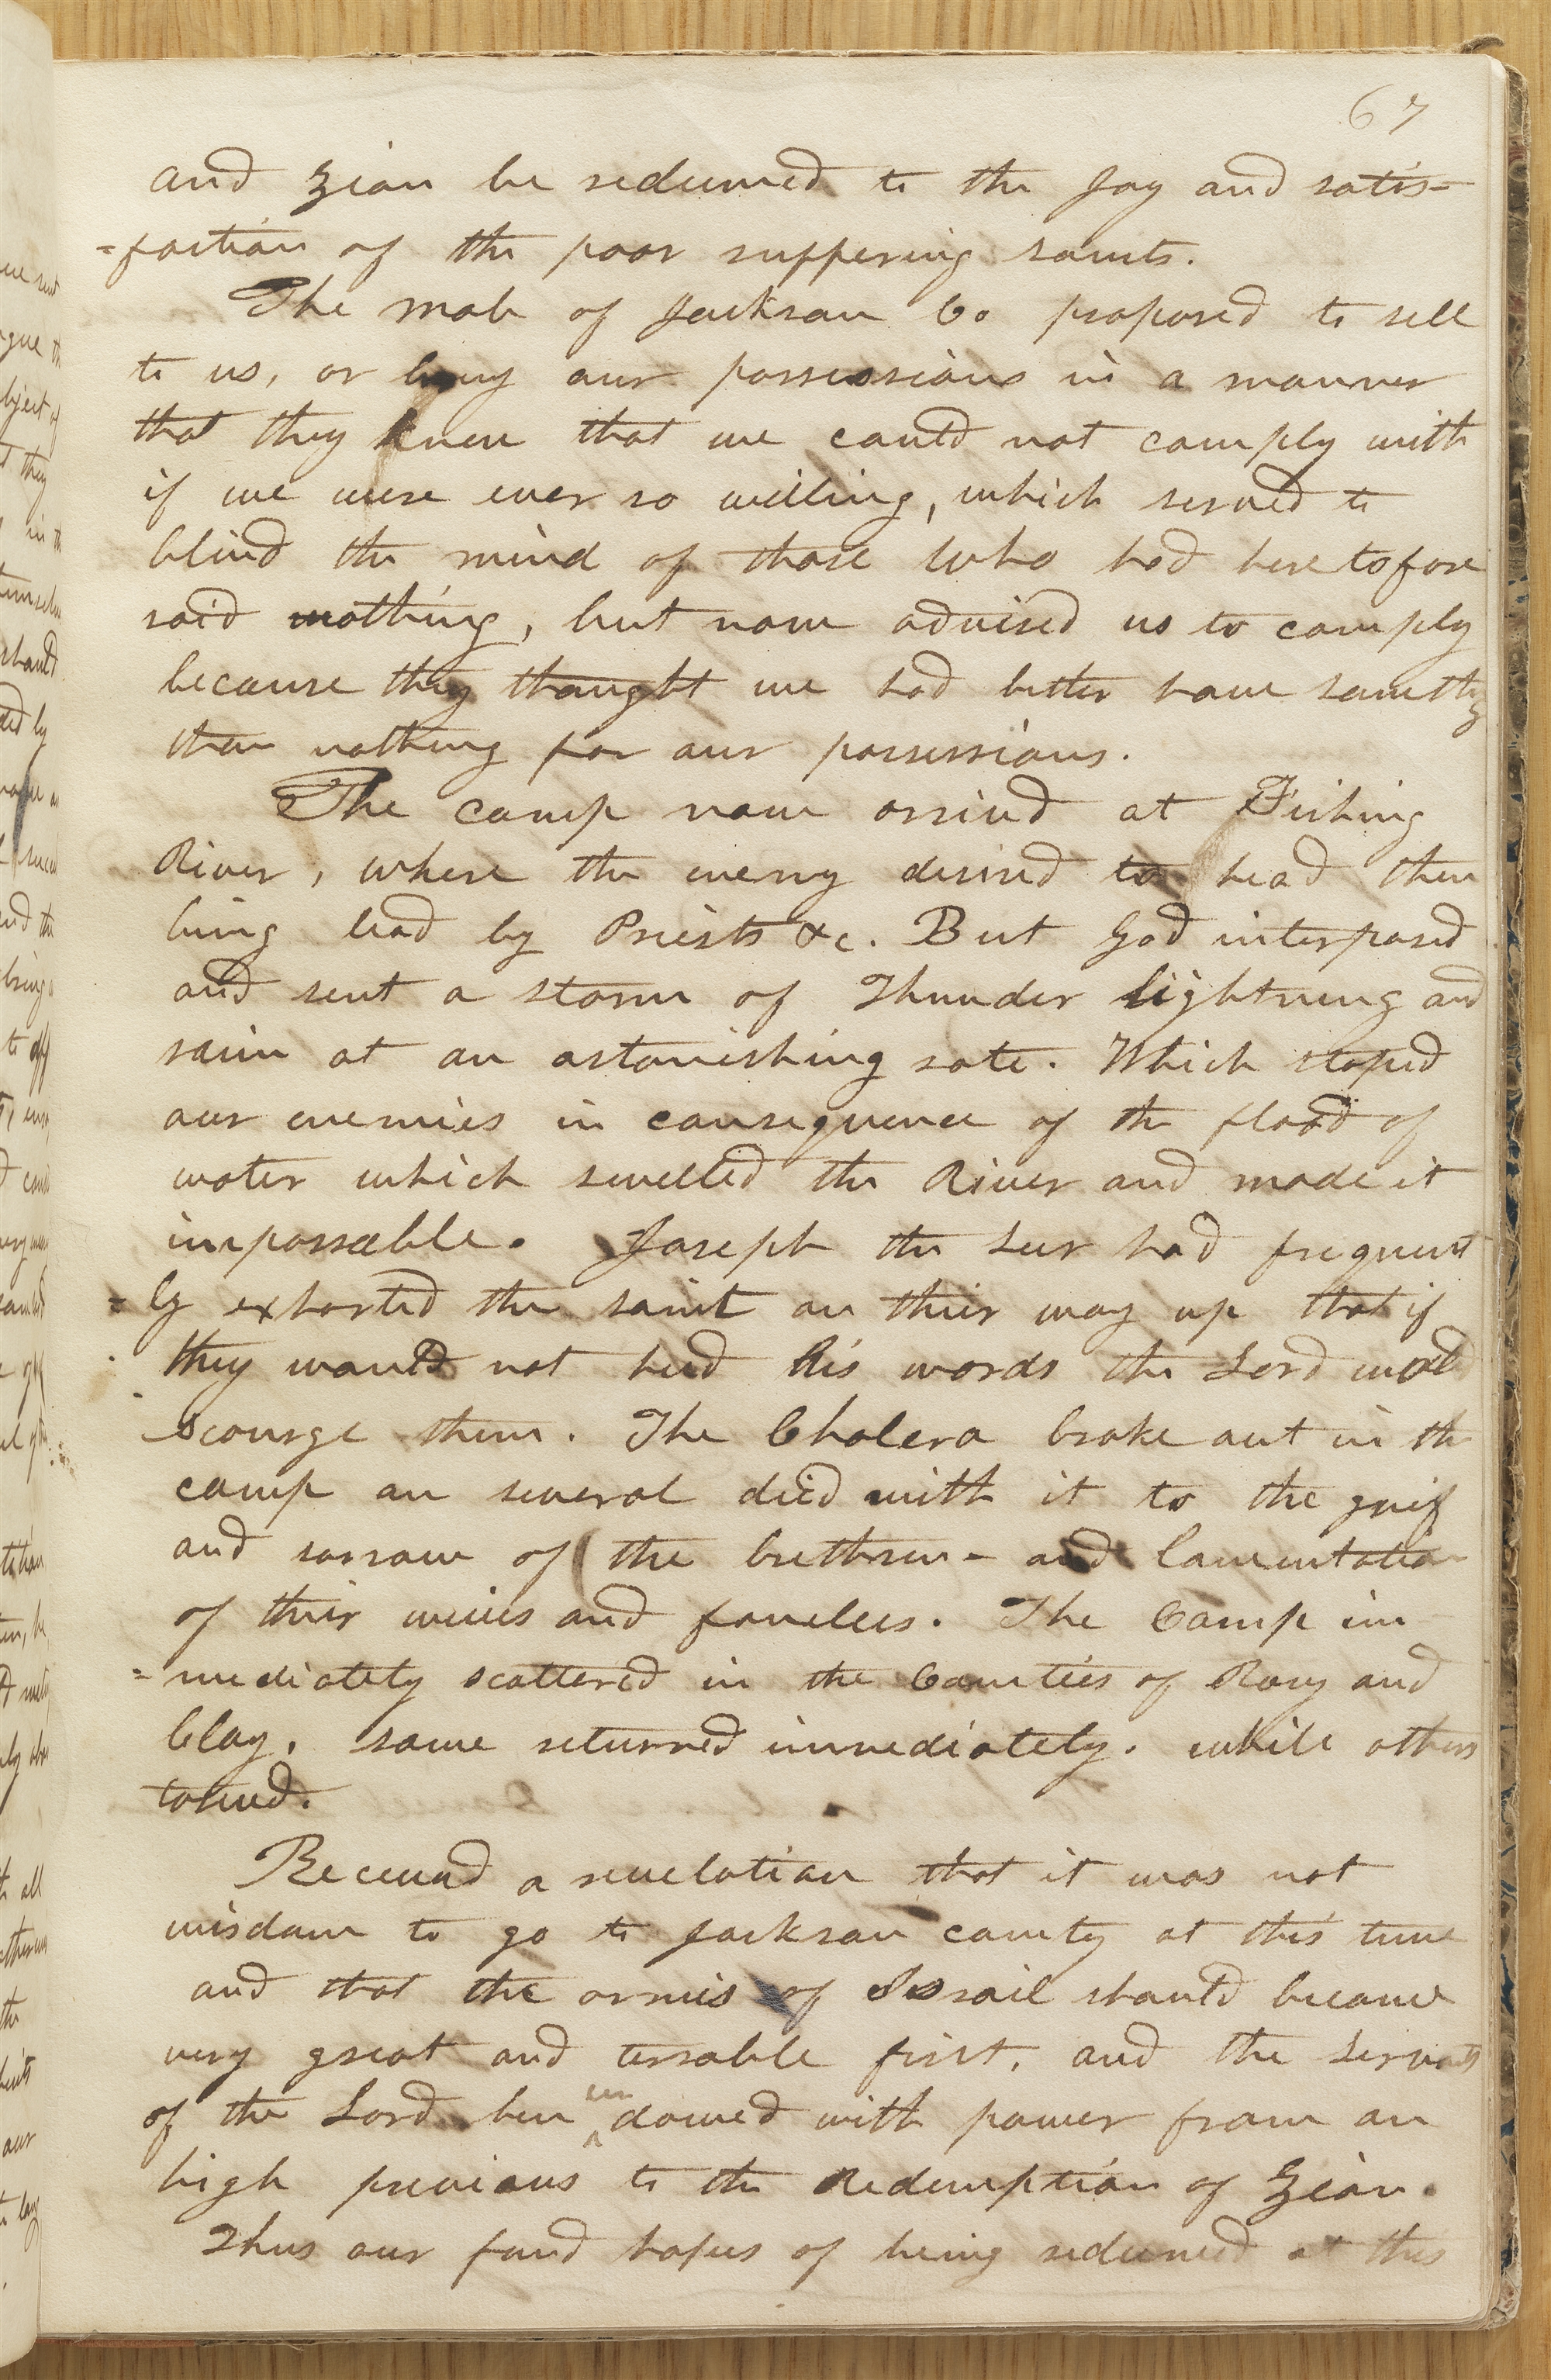 67
and Zion be redeemed to the Joy and satis=
=faction of the poor suffering saints.
The mob of Jackson Co proposed to sell
to us, or buy our possessions in a manner
that they knew that we could not comply with
if we were ever so willing, which served to
blind the mind of those who had heretofore
said nothing, but now advised us to comply
because they thought we had better have something
than nothing for our possessions.
The camp now arrived at Fishing
River, where the enemy desired to head them
being lead by Priests &c. But God interposed
and sent a storm of Thunder lightning and
rain at an astonishing rate. Which stoped
our enemies in consequence of the flood of
water which swelled the River and made it
impossable. Joseph the seer had frequent
=ly exhorted the saint on their way up that if
they would not heed his words the Lord would
scourge them. The Cholera broke out in the
camp an several died with it to the grief
and sorrow of the brethren - and lamentation
of their wives and famelees. The Camp im
=mediately scattered in the Counties of Ray and
Clay. some returned immediately. while others
taried.
Received a revelation that it was not
wisdom to go to Jackson county at this time
and that the armies of Israil should become
very great and terrable first, and the servants
of the Lord been
en
dowed with power from on
high previous to the Redemption of Zion.
Thus our fond hopes of being redeemed at this